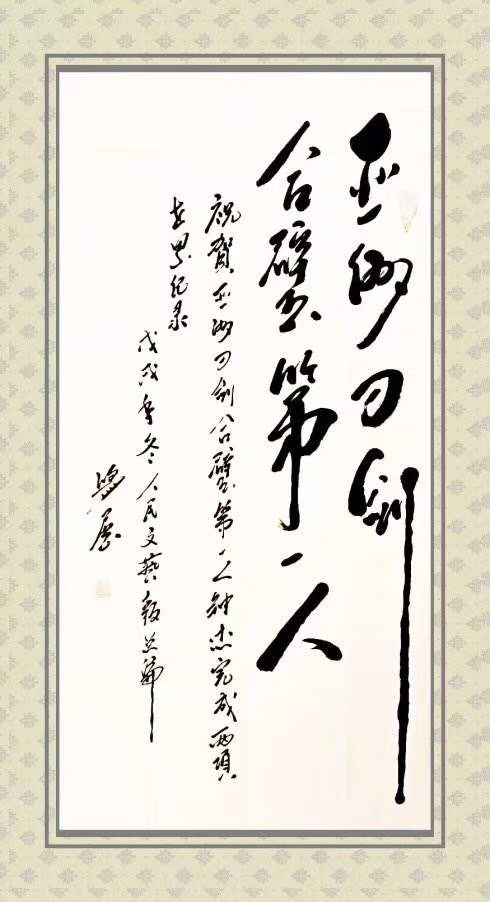 亚洲刀剑
合璧第一人
祝贺亚洲刀剑合璧第一人钟杰完成两项
世界纪录
戊戌年冬人民文藝報总编